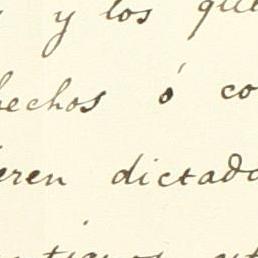 y los que
hechos ó co
eren dictado